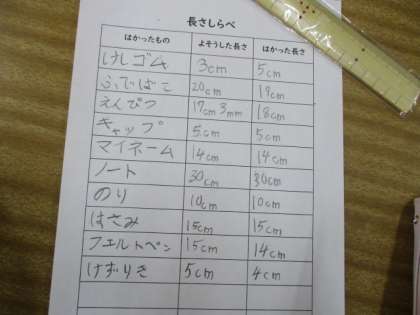 長さしらべ
はかったもの よそうした長さ はかった長さ
けしゴム 3cm 5cm
ふでばこ 20cm 19cm
えんぴつ 17cm 3mm 18cm
キャップ 5cm 5cm
マイネーム 14cm 14cm
ノート 30cm 30cm
のり 10cm 10cm
はさみ 15cm 15cm
フエルトペン 15cm 14cm
けずりき 5cm 4cm